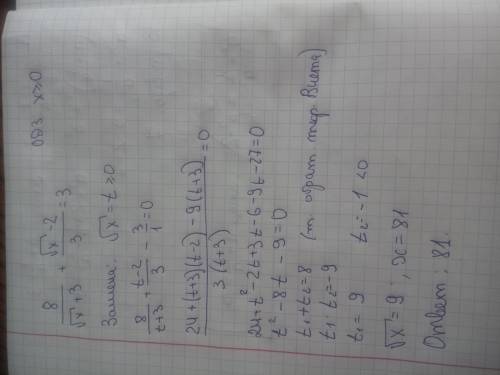 8/(√x+3) + (√x-2)/3 = 3     ОДЗ x≥0
Замена: √x = t ≥ 0
8/(t+3) + (t-2)/3 - 3/1 = 0
(24+(t+3)(t-2)-9(t+3))/(3(t+3)) = 0
24+t²-2t+3t-6-9t-27=0
t²-8t-9=0
t₁+t₂=8 (т обрат теор Виета)
t₁·t₂=-9
t₁=9     t₂=-1<0
√x=9; x=81
Ответ: 81.